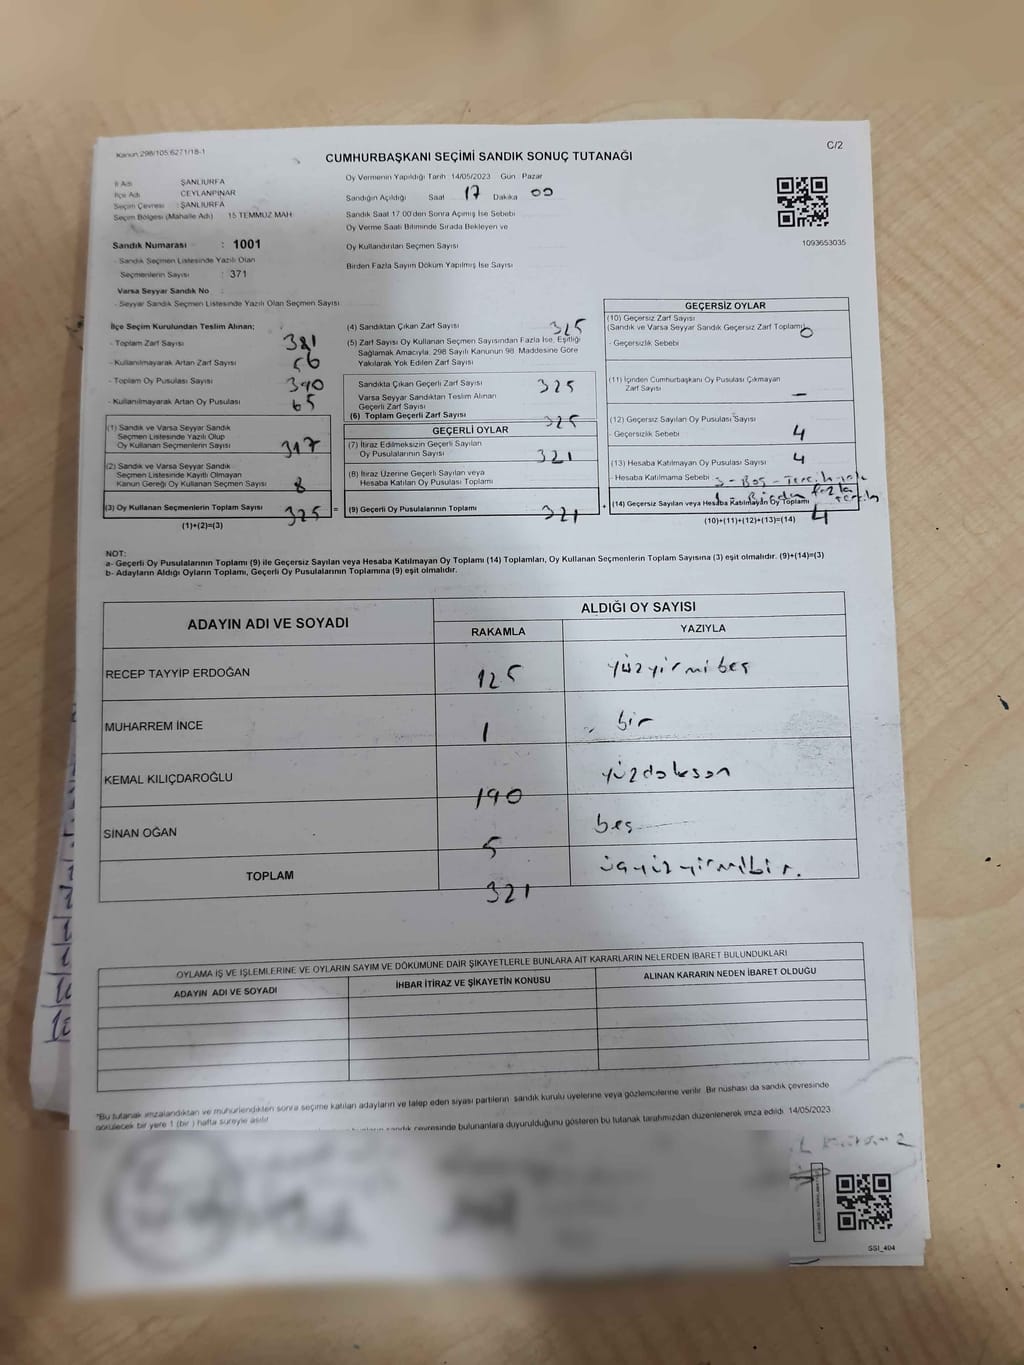 Kanun 298/105 6271/18-1
C/2
CUMHURBAŞKANI SEÇİMİ SANDIK SONUÇ TUTANAĞI
İl Adı ŞANLIURFA
İlçe Adı CEYLANPINAR
Seçim Çevresi : ŞANLIURFA
Seçim Bölgesi (Mahalle Adı) 15 TEMMUZ MAH
Oy Vermenin Yapıldığı Tarih 14/05/2023 Gün Pazar
Sandığın Açıldığı Saat 17 Dakika 00
Sandık Saat 17 00'den Sonra Açılmış İse Sebebi
Oy Verme Saati Bitiminde Sırada Bekleyen ve
Oy Kullandırılan Seçmen Sayısı
Birden Fazla Sayım Döküm Yapılmış İse Sayısı
1093653035
Sandık Numarası : 1001
- Sandık Seçmen Listesinde Yazılı Olan
Seçmenlerin Sayısı : 371
Varsa Seyyar Sandık No
- Seyyar Sandık Seçmen Listesinde Yazılı Olan Seçmen Sayısı
İlçe Seçim Kurulundan Teslim Alınan;
- Toplam Zarf Sayısı 381
- Kullanılmayarak Artan Zarf Sayısı 56
- Toplam Oy Pusulası Sayısı 390
- Kullanılmayarak Artan Oy Pusulası 65
(1) Sandık ve Varsa Seyyar Sandık
Seçmen Listesinde Yazılı Olup
Oy Kullanan Seçmenlerin Sayısı 317
(2) Sandık ve Varsa Seyyar Sandık
Seçmen Listesinde Kayıtlı Olmayan
Kanun Gereği Oy Kullanan Seçmen Sayısı 8
(3) Oy Kullanan Seçmenlerin Toplam Sayısı 325 =
(1)+(2)=(3)
(4) Sandıktan Çıkan Zarf Sayısı 325
(5) Zarf Sayısı Oy Kullanan Seçmen Sayısından Fazla İse, Eşitliği
Sağlamak Amacıyla, 298 Sayılı Kanunun 98. Maddesine Göre
Yakılarak Yok Edilen Zarf Sayısı
Sandıkta Çıkan Geçerli Zarf Sayısı 325
Varsa Seyyar Sandıktan Teslim Alınan
Geçerli Zarf Sayısı
(6) Toplam Geçerli Zarf Sayısı 325
GEÇERLİ OYLAR
(7) İtiraz Edilmeksizin Geçerli Sayılan
Oy Pusulalarının Sayısı 321
(8) İtiraz Üzerine Geçerli Sayılan veya
Hesaba Katılan Oy Pusulası Toplamı
(9) Geçerli Oy Pusulalarının Toplamı 321 +
GEÇERSİZ OYLAR
(10) Geçersiz Zarf Sayısı
(Sandık ve Varsa Seyyar Sandık Geçersiz Zarf Toplamı) 0
- Geçersizlik Sebebi
(11) İçinden Cumhurbaşkanı Oy Pusulası Çıkmayan
Zarf Sayısı —
(12) Geçersiz Sayılan Oy Pusulası Sayısı
- Geçersizlik Sebebi 4
(13) Hesaba Katılmayan Oy Pusulası Sayısı 4
- Hesaba Katılmama Sebebi : 3 - Boş -
fazla
(14) Geçersiz Sayılan veya Hesaba Katılmayan Oy Toplamı 4
(10)+(11)+(12)+(13)=(14)
NOT:
a- Geçerli Oy Pusulalarının Toplamı (9) ile Geçersiz Sayılan veya Hesaba Katılmayan Oy Toplamı (14) Toplamları, Oy Kullanan Seçmenlerin Toplam Sayısına (3) eşit olmalıdır. (9)+(14)=(3)
b- Adayların Aldığı Oyların Toplamı, Geçerli Oy Pusulalarının Toplamına (9) eşit olmalıdır.
ADAYIN ADI VE SOYADI
ALDIĞI OY SAYISI
RAKAMLA YAZIYLA
RECEP TAYYİP ERDOĞAN 125 yüzyirmibeş
MUHARREM İNCE 1 bir
KEMAL KILIÇDAROĞLU 190 yüzdoksan
SİNAN OĞAN 5 beş
TOPLAM 321 üçyüzyirmibir.
OYLAMA İŞ VE İŞLEMLERİNE VE OYLARIN SAYIM VE DÖKÜMÜNE DAİR ŞİKAYETLERLE BUNLARA AİT KARARLARIN NELERDEN İBARET BULUNDUKLARI
ADAYIN ADI VE SOYADI İHBAR İTİRAZ VE ŞİKAYETİN KONUSU ALINAN KARARIN NEDEN İBARET OLDUĞU
*Bu tutanak imzalandıktan ve mühürlendikten sonra seçime katılan adayların ve talep eden siyasi partilerin sandık kurulu üyelerine veya gözlemcilerine verilir. Bir nüshası da sandık çevresinde
görülecek bir yere 1 (bir) hafta süreyle asılır
sandık çevresinde bulunanlara duyurulduğunu gösteren bu tutanak tarafımızdan düzenlenerek imza edildi. 14/05/2023
SSI_404